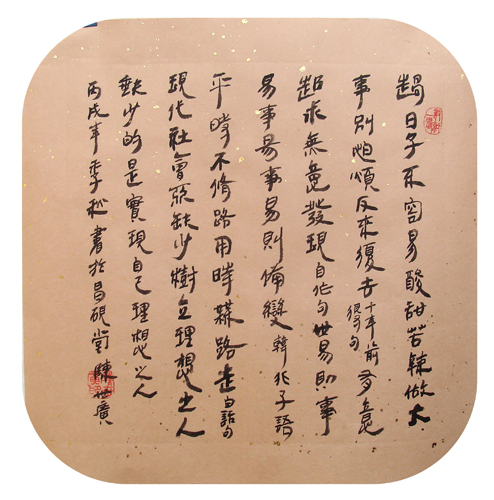 日子不容易酸甜苦辣做大
事別怕煩反來復去十年前有意
求無意發現自作句世易則事
易事易事易則備變韓非子語
平時不修路用時路走白話句
現代社會缺少樹立理想之人
缺少的是實現自己理想之人
丙戌年季秋書於昌硯堂陳世廣